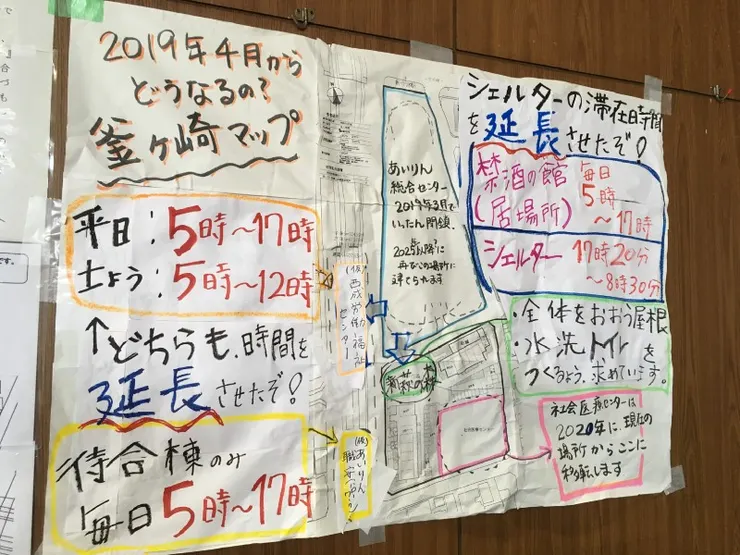 2019年4月から
どうなるの？
釜ヶ崎マップ
平日：5時～17時
土よう：5時～12時
↑どちらも、時間を
延長させたぞ！
待合棟のみ
毎日5時～17時
(仮)西成労働・福祉センター
(仮)あいりん
あいりん
総合センター
2019年3月で
いったん閉鎖、
2025年以降に
再びこの場所に
建てられます
新萩の森
シェルターの滞在時間
を延長させたぞ！
禁酒の館
(居場所)
毎日
5時
～17時
シェルター 17時20分
～8時30分
・全体をおおう屋根
・水洗トイレを
つくるよう、求めています。
社会医療センターは
2020年に、現在の
場所からここに
移転します